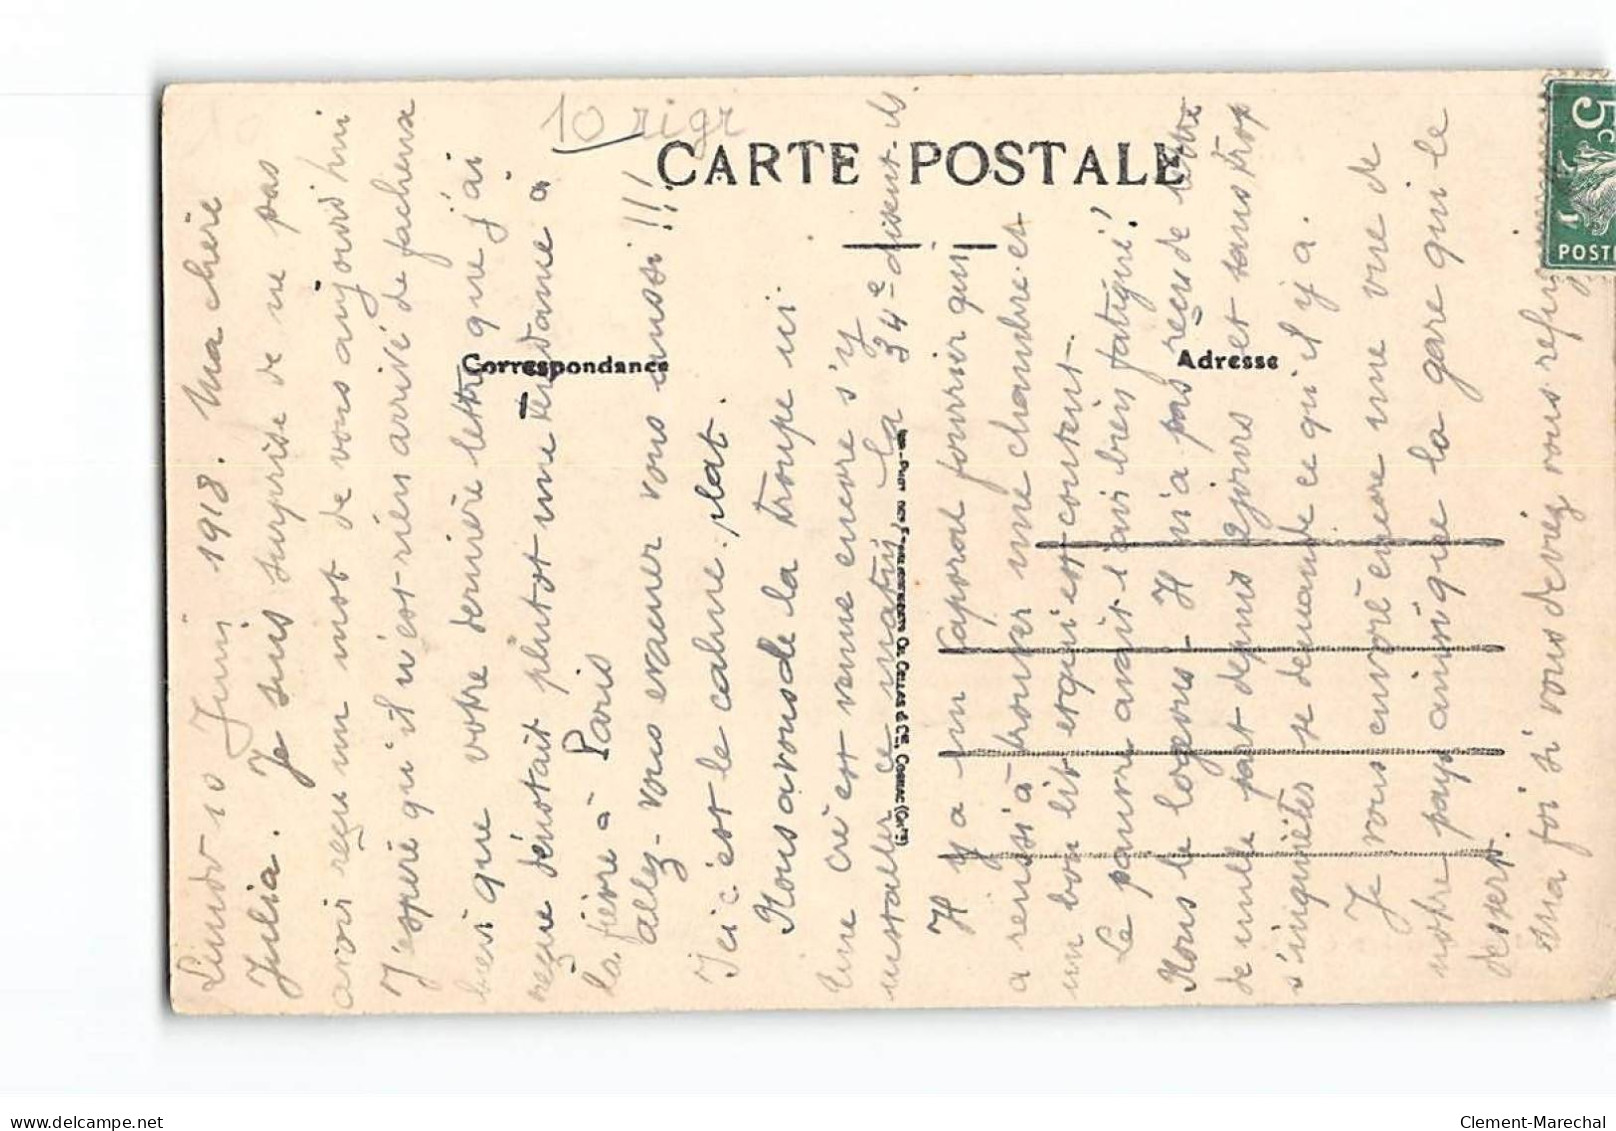 10 rigr
CARTE POSTALE
Correspondance
Adresse
Lundi 10 Juin 1918. Ma chère
Julia. Je suis surprise de ne pas
avoir reçu un mot de vous aujourd'hui
J'espère qu'il n'est rien arrivé de facheux
bien que votre dernière lettre que j'ai
reçue dénotait plutôt une à
la fièvre à Paris
allez-vous evacuer vous aussi!!!
Ici c'est le calme plat.
Nous avons de la troupe ici
Une Cie est venue encore s'y
installer ce matin, La 34e disent-ils
Il y a un Caporal fourrier qui
a reussi à trouver une chambre et
un bon lit et qui est content.
Le pauvre avait l'air bien fatigué!
Nous le logeons - Il n'a pas reçu de lettre
de nulle part depuis 2 jours et sans trop
s'inquiéter se demande ce qu'il y a.
Je vous envoie encore une vue de
notre pays ainsi que la gare qui le
dessert.
Ma foi si vous deviez vous
5c
POSTE
Clement-Marechal
delcampe.net